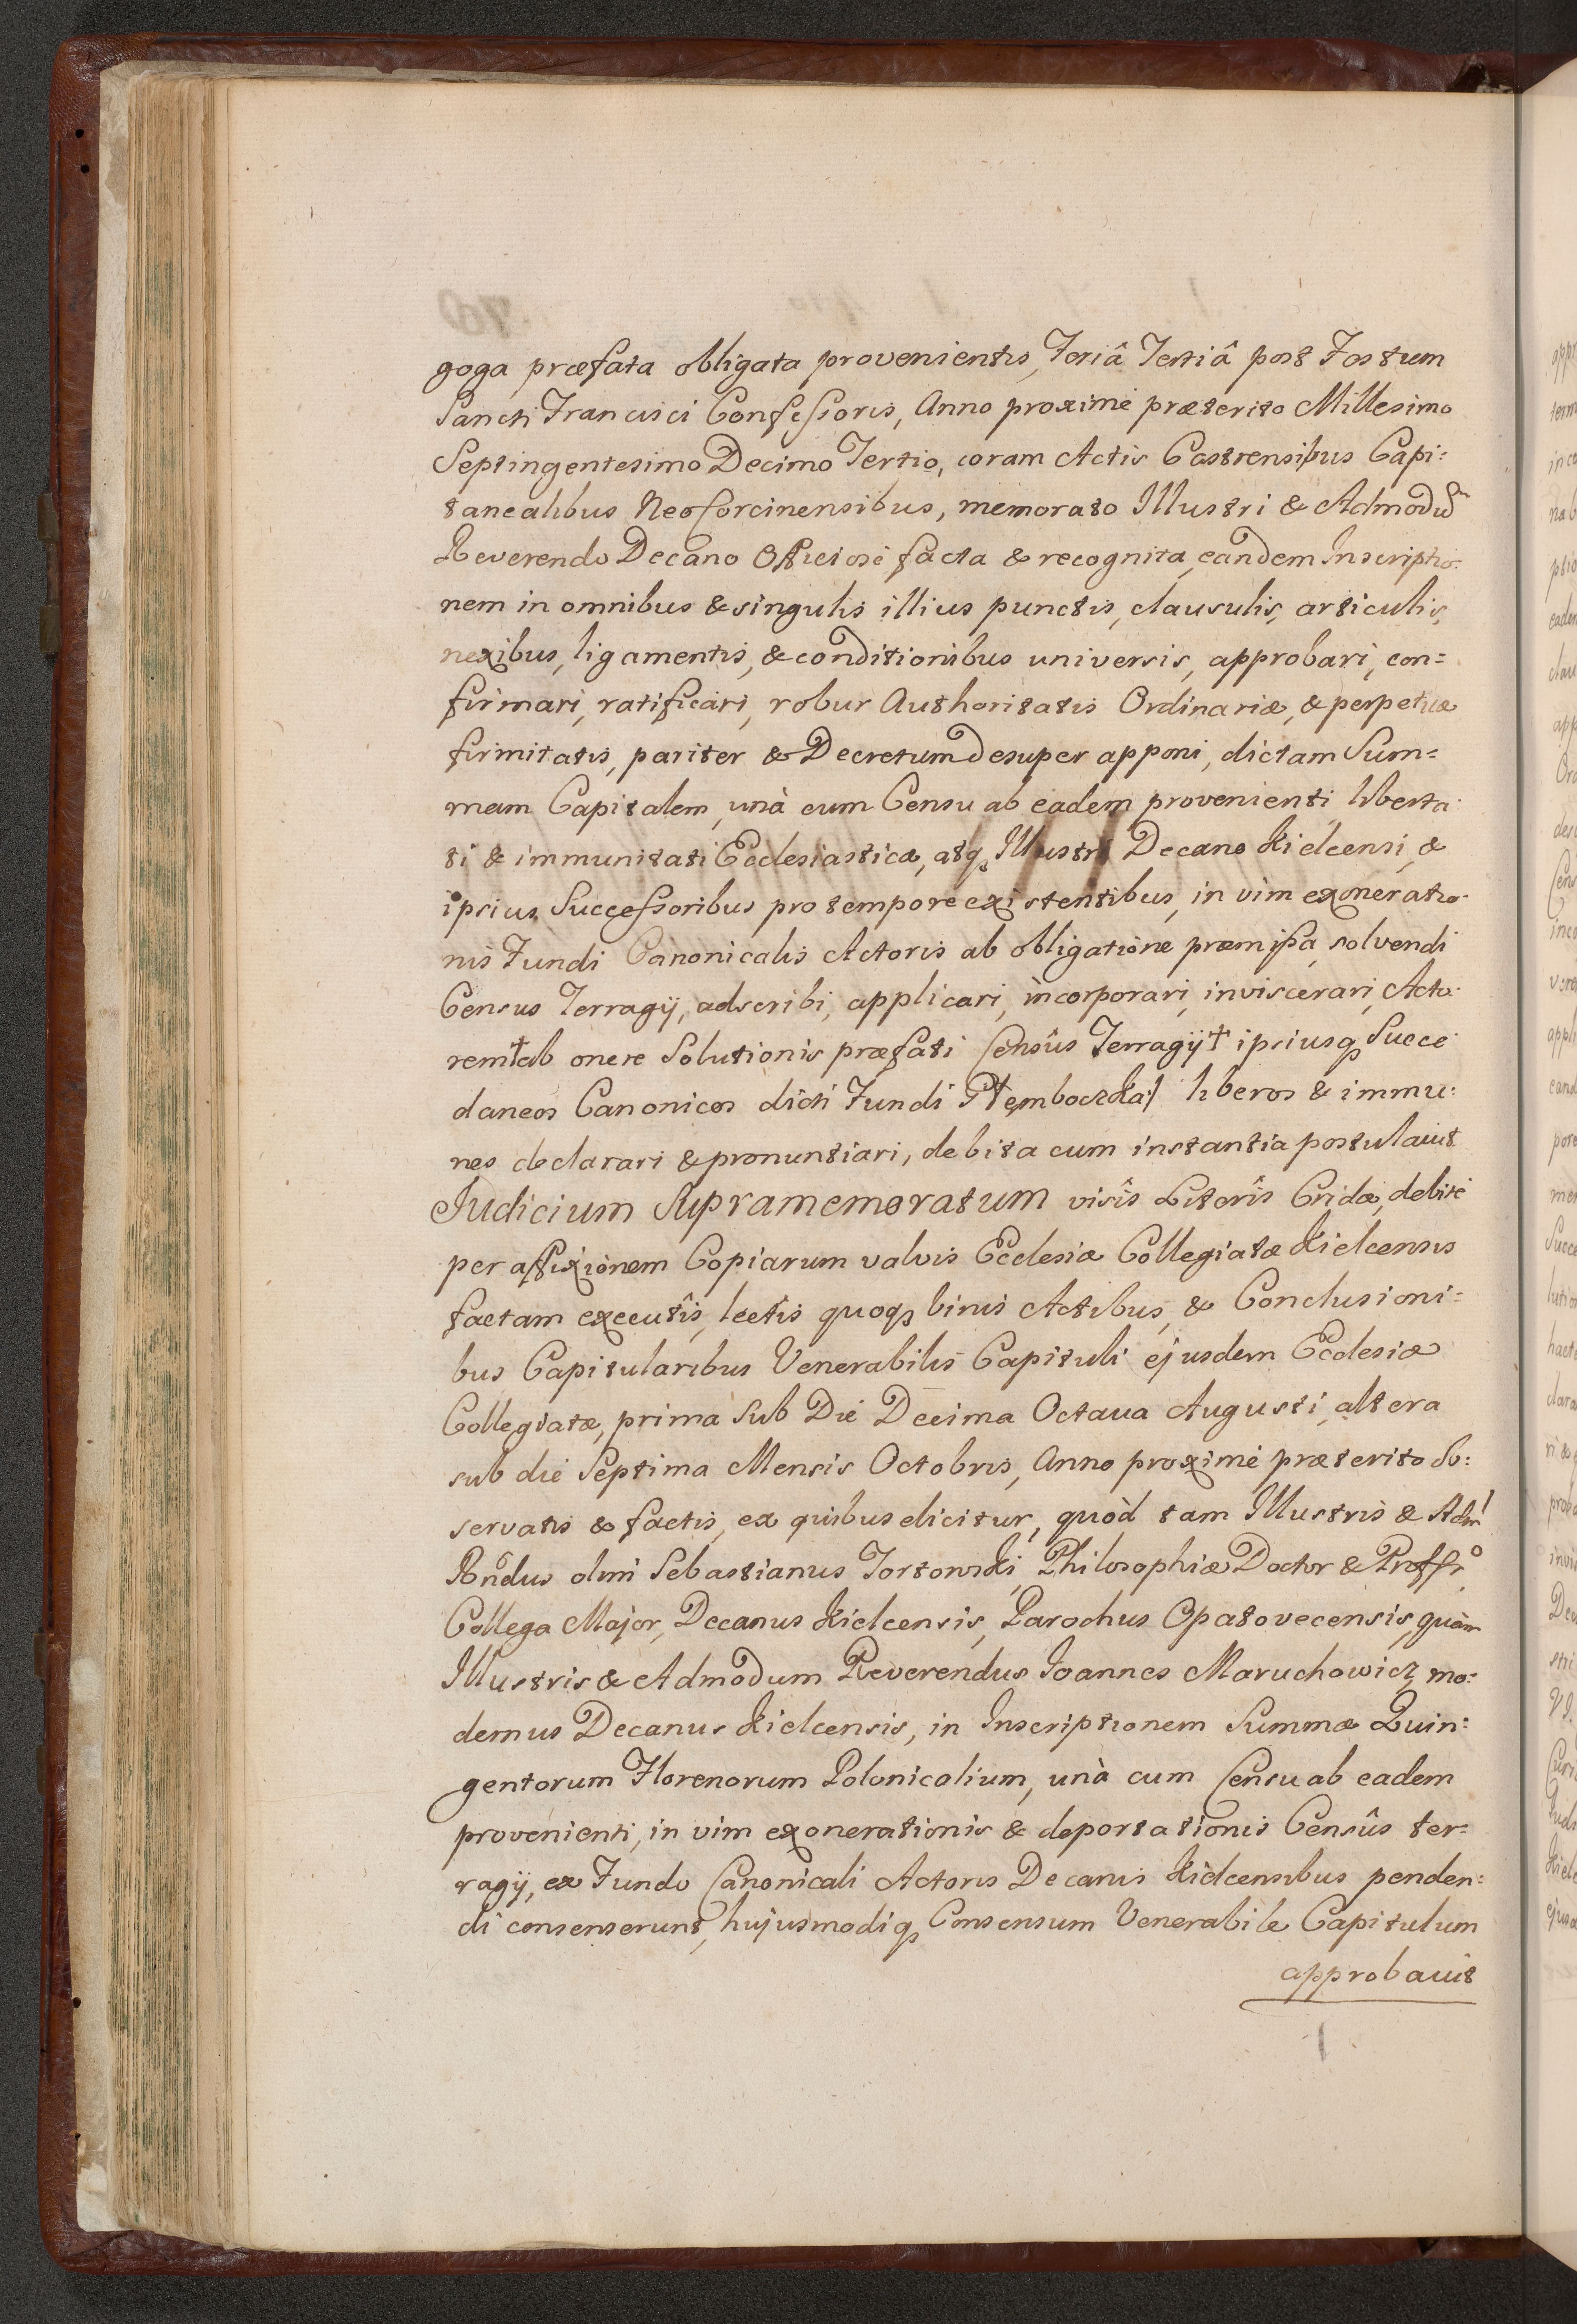 goga præfata obligata provenientis, Feriâ Tertiâ post Festum
Sancti Francisci Confessoris, Anno proximè præterito Millesimo
Septingentesimo Decimo Tertio, coram Actis Castrensibus Capi=
tanealibus Neoforcinensibus, memorato Illustri & Admodũ
Reverendo Decano Officiosè facta & recognita, eandem Inscriptio=
nem in omnibus & singulis illius punctis, clausulis, articulis,
nexibus, ligamentis, & conditionibus universis, approbari, con=
firmari, ratificari, robur Authoritatis Ordinariæ, & perpetuæ
firmitatis, pariter & Decretum desuper apponi, dictam Sum=
mam Capitalem, unà cum Censu ab eadem provenienti, liberta=
ti & immunitati Ecclesiasticæ, atq Illustri Decano Kielcensi, &
ipsius Successoribus pro tempore existentibus, in vim exoneratio=
nis Fundi Canonicalis Actoris ab obligatione præmissa, solvendi
Census Terragij, adscribi, applicari, incorporari, inviscerari, Acto=
rem† ab onere Solutionis præfati Censûs Terragij † ipsiusq Succe=
daneos Canonicos dicti Fundi Ptemboczka/ liberos & immu=
nes declarari & pronuntiari, debita cum instantia postulavit
Iudicium Supramemoratum visîs Literîs Cridæ, debitè
per affixionem Copiarum valvis Ecclesiæ Collegiatæ Kielcensis
factam executîs, lectis quoq binis Actibus, & Conclusioni=
bus Capitularibus Venerabilis Capituli ejusdem Ecclesiæ
Collegiatæ, prima sub Die Decima Octava Augusti, altera
sub die Septima Mensis Octobris, Anno proximè præterito Ob=
servatis & factis, ex quibus elicitur, quòd tam Illustris & Adm
Rndus olim Sebastianus Philosophiæ Doctor & Proffr
Collega Major, Decanus Kielcensis, Parochus Opatovecensis, quàm
Illustris & Admodum Reverendus Ioannes Maruchowicz, mo=
dernus Decanus Kielcensis, in Inscriptionem Summæ Quin=
gentorum Florenorum Polonicalium, unà cum Censu ab eadem
provenienti, in vim exonerationis & deportationis Censûs ter=
ragij, ex Fundo Canonicali Actoris Decanis Kielcensibus penden=
di consenserunt, hujusmodiq Consensum Venerabile Capitulum
approbavit